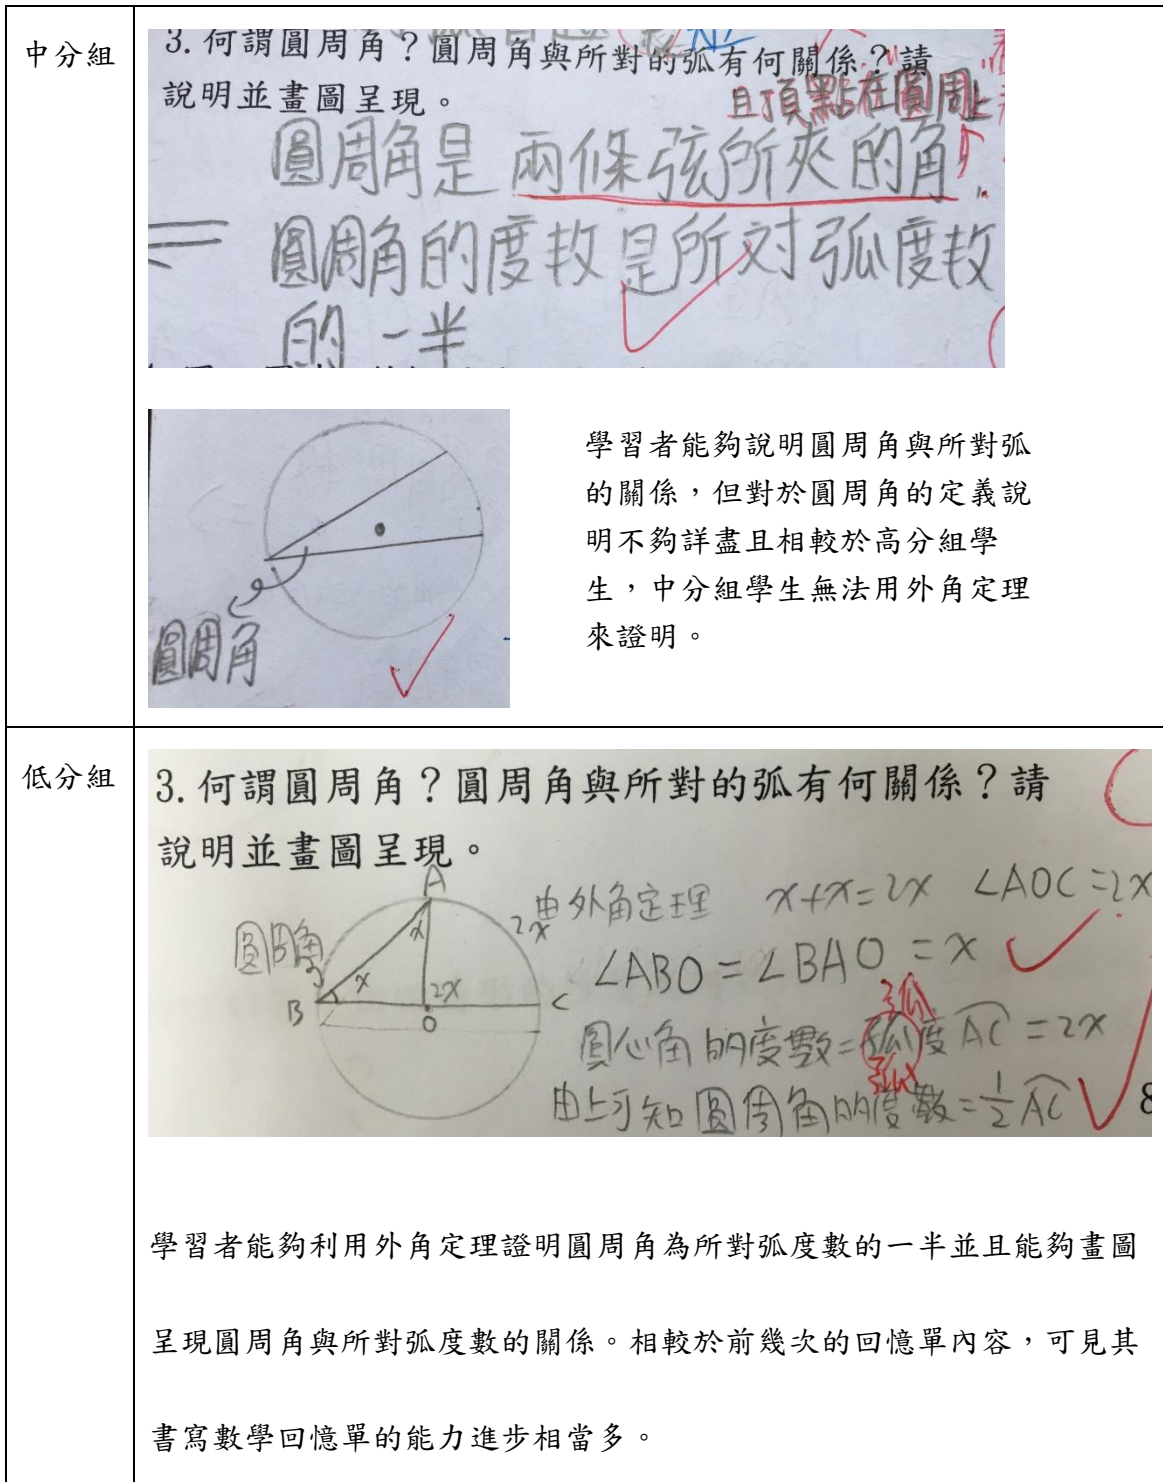 中分組
3. 何謂圓周角？圓周角與所對的弧有何關係？請
說明並畫圖呈現。
且頂點在圓周上
圓周角是兩條弦所夾的角
圓周角的度敉是所対弧度敉
的一半
圓周角
學習者能夠說明圓周角與所對弧
的關係，但對於圓周角的定義說
明不夠詳盡且相較於高分組學
生，中分組學生無法用外角定理
來證明。
低分組
3. 何謂圓周角？圓周角與所對的弧有何關係？請
說明並畫圖呈現。
A
圓周角
x
x
2x
B
O
C
2x
由外角定理 x+x=2x ∠AOC=2x
∠ABO=∠BAO=x
弧
圓心角的度數=弧度AC=2x
弧
由上可知圓周角的度數=1/2 AC
8
學習者能夠利用外角定理證明圓周角為所對弧度數的一半並且能夠畫圖
呈現圓周角與所對弧度數的關係。相較於前幾次的回憶單內容，可見其
書寫數學回憶單的能力進步相當多。